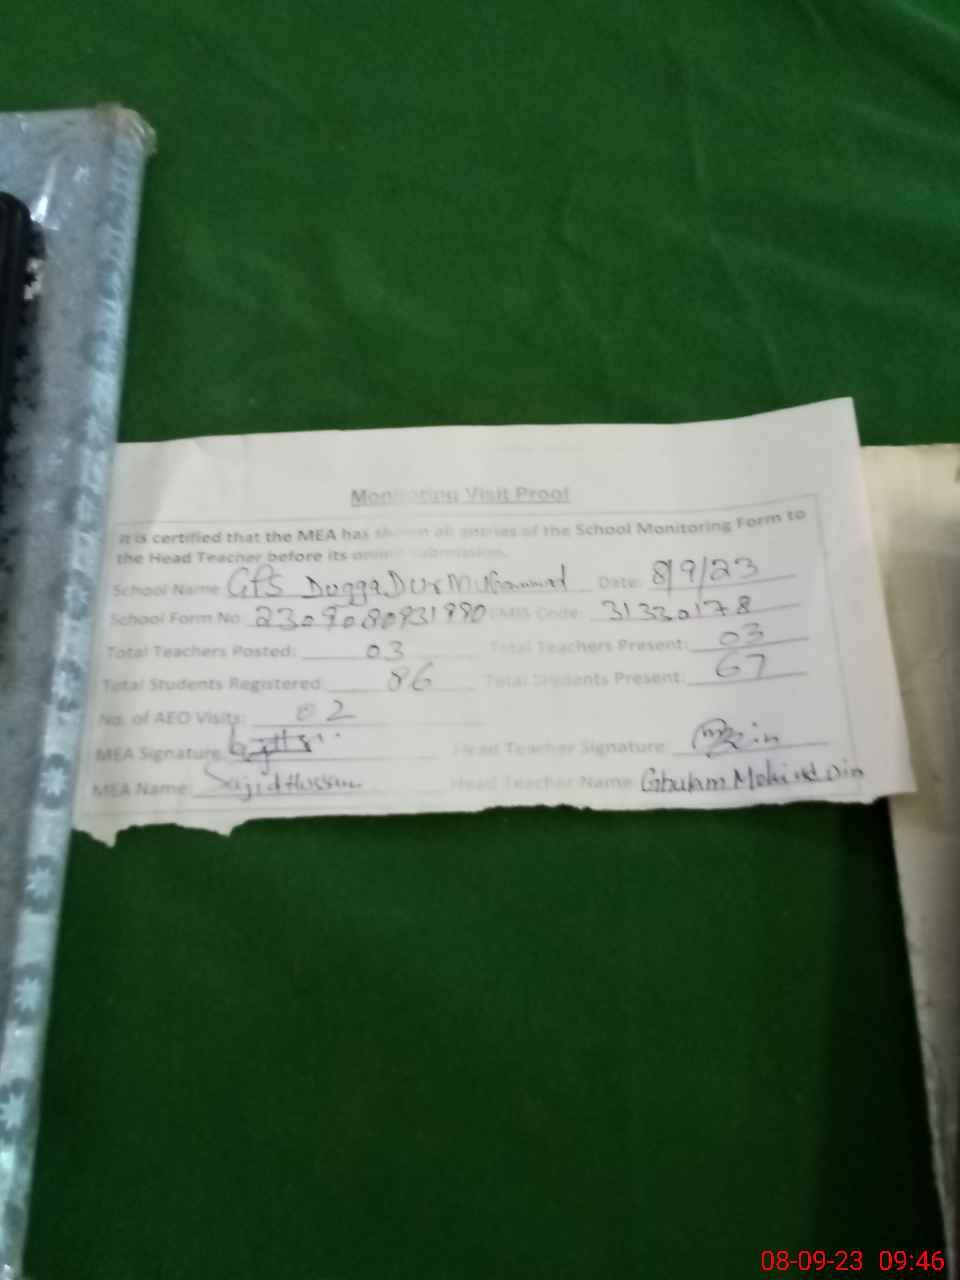 Monitoring Visit Proof
It is certified that the MEA has shown all entries of the School Monitoring Form to
the Head Teacher before its online submission.
School Name GPS Dogga Dur Muhammad Date: 8/9/23
School Form No: 2309080931980 EMIS Code: 31330178
Total Teachers Posted: 03 Total Teachers Present: 03
Total Students Registered: 86 Total Students Present: 67
No. of AEO Visits: 02
MEA Signature Head Teacher Signature:
MEA Name Sajid Hussain Head Teacher Name: Ghulam Mohiud Din
08-09-23 09:46